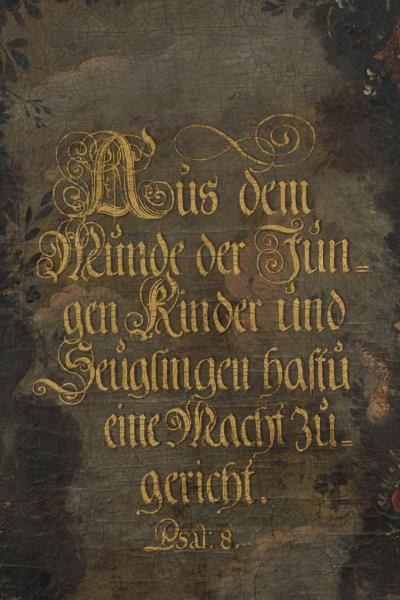 Aůs dem
Můnde der Jůn-
gen Kinder ůnd
Seůglingen hastů
eine Macht zů-
gericht.
Psal: 8.